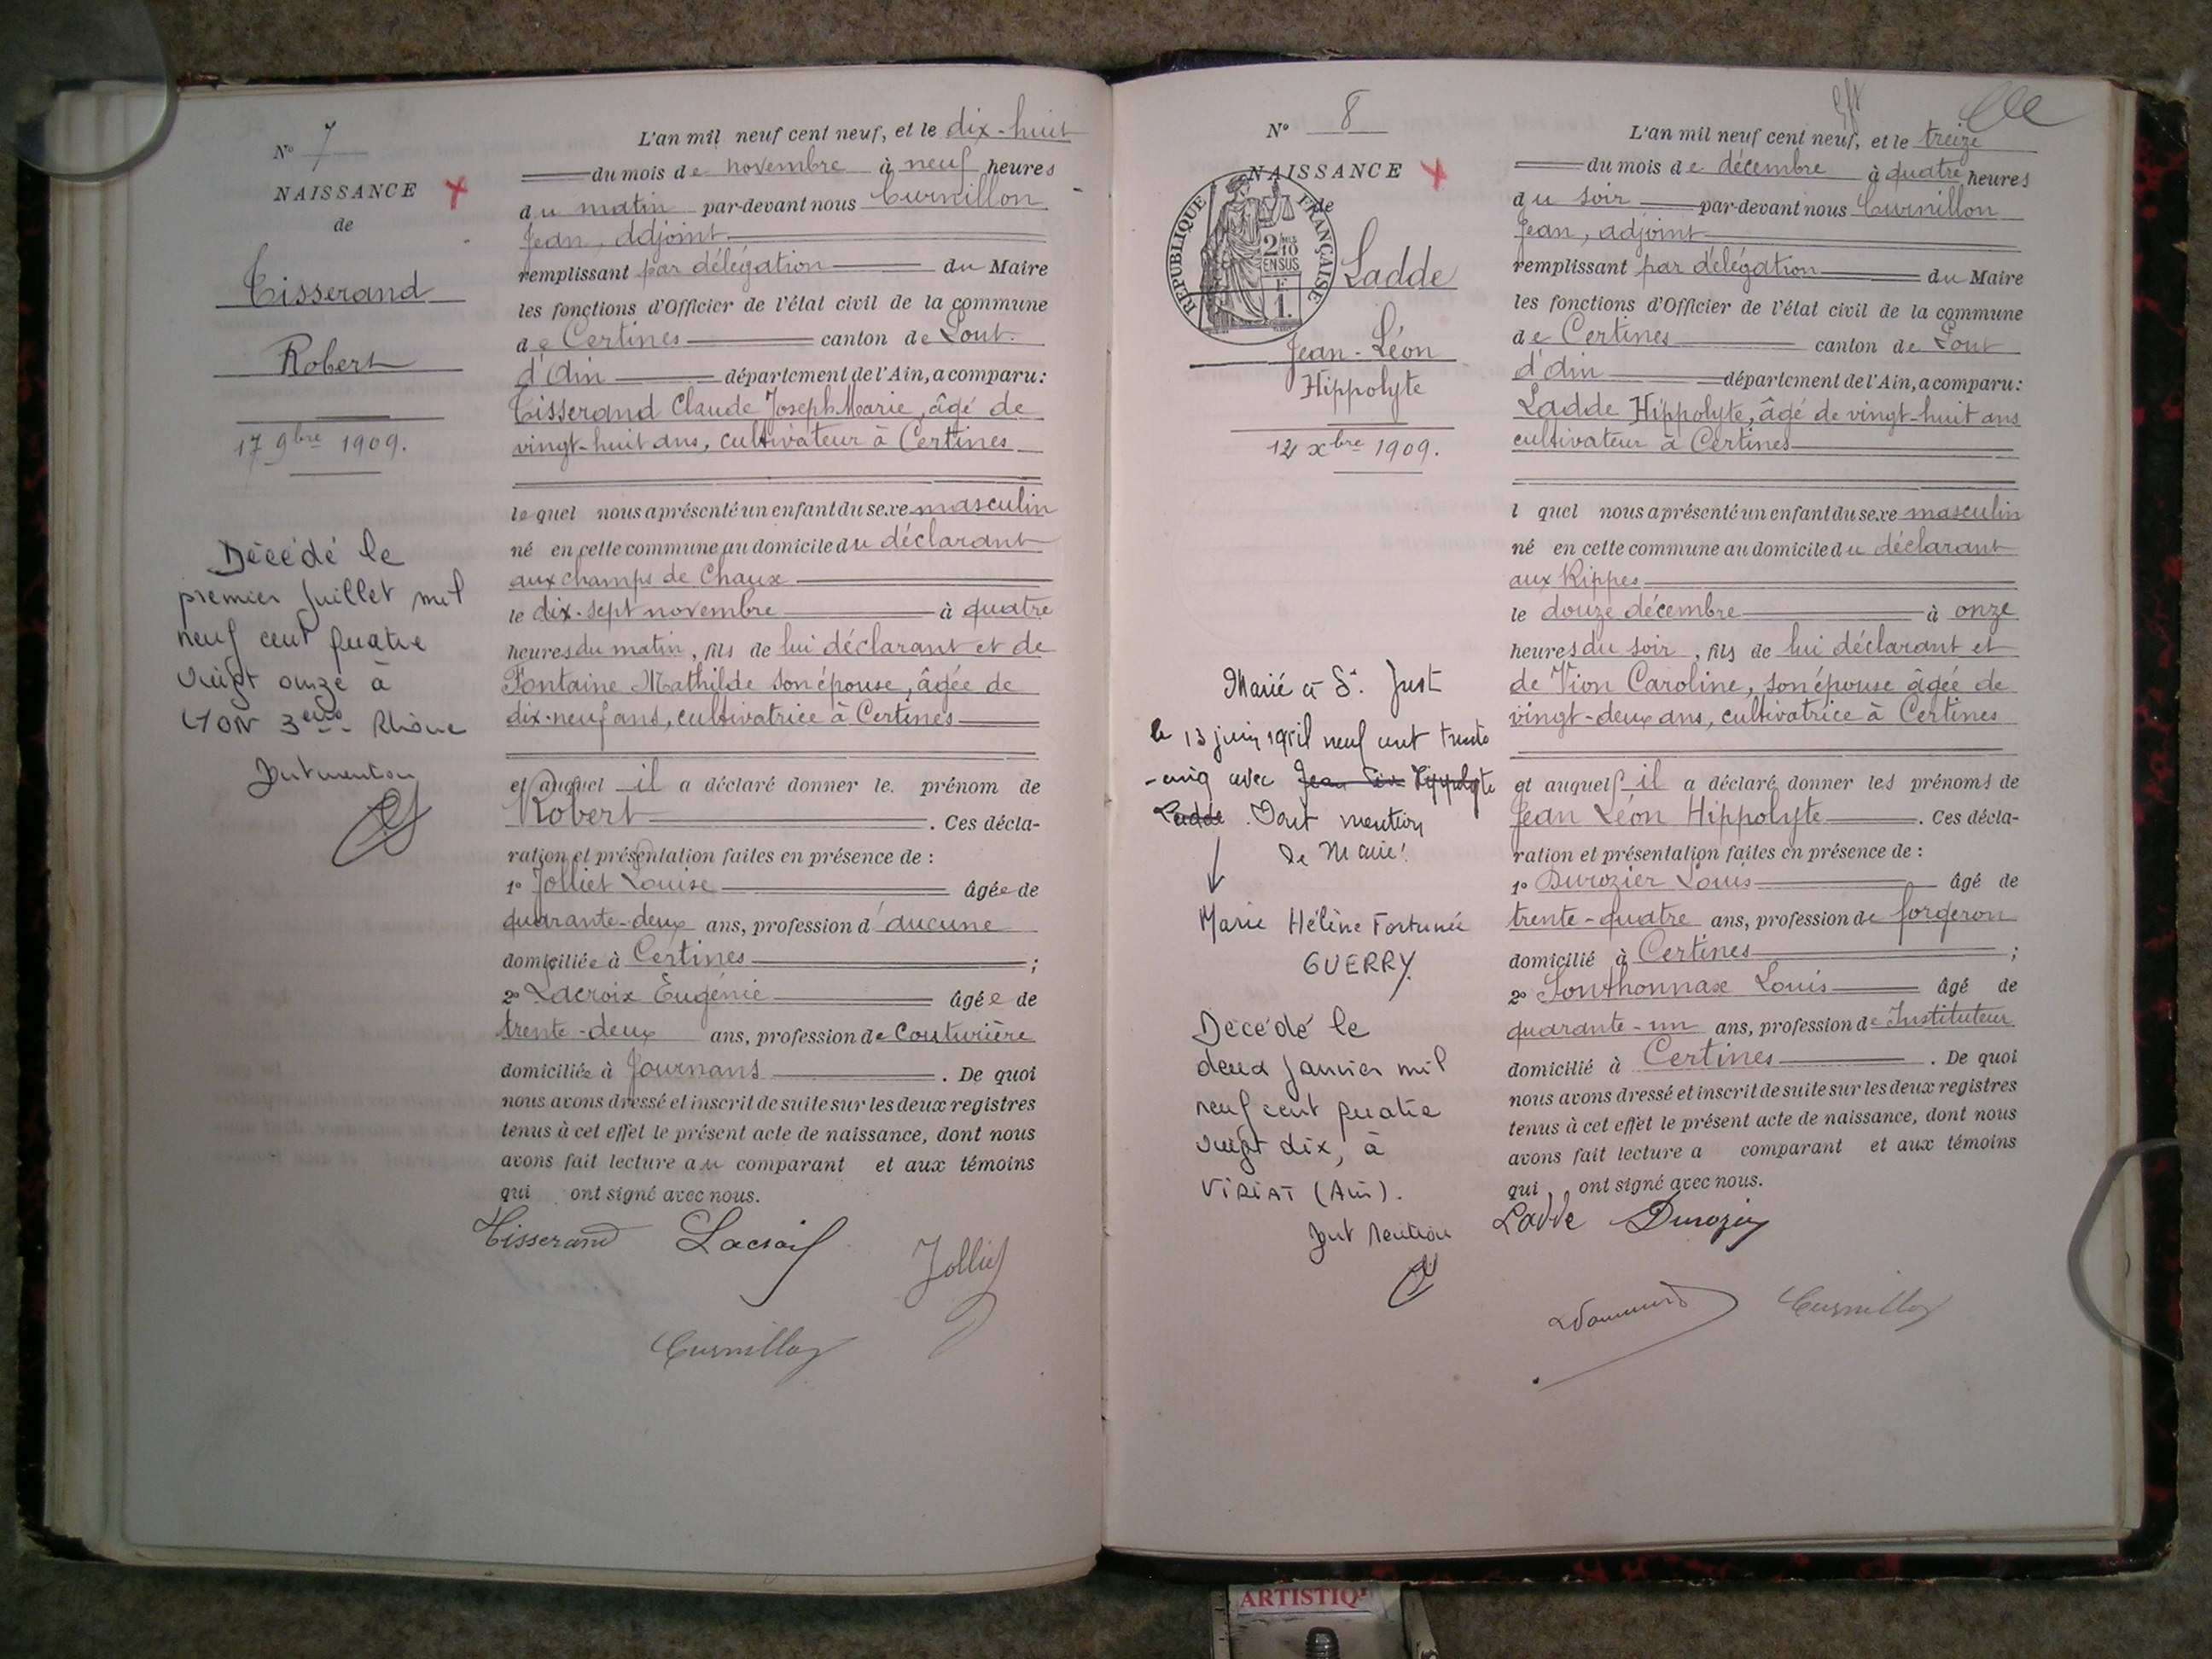 N° 7
NAISSANCE
de
Tisserand
Robert
17 9bre 1909.
Décédé le
premier Juillet mil
neuf cent quatre
vingt onze à
LYON 3eme Rhône
Dont mention
L'an mil neuf cent neuf, et le dix-huit
du mois de novembre à neuf heures
du matin par-devant nous Curnillon
Jean, adjoint
remplissant par délégation du Maire
les fonctions d'Officier de l'état civil de la commune
de Certines canton de Pont.
d'Ain département de l'Ain, a comparu:
Tisserand Claude Joseph Marie, âgé de
vingt-huit ans, cultivateur à Certines
lequel nous a présenté un enfant du sexe masculin
né en cette commune au domicile du déclarant
aux champs de Chaux
le dix-sept novembre à quatre
heures du matin, fils de lui déclarant et de
Fontaine Mathilde son épouse, âgée de
dix-neuf ans, cultivatrice à Certines
et auquel il a déclaré donner le prénom de
Robert. Ces décla-
ration et présentation faites en présence de :
1° Jolliet Louise âgée de
quarante-deux ans, profession d'aucune
domiciliée à Certines ;
2° Lacroix Eugénie âgée de
trente-deux ans, profession de Couturière
domiciliée à Journans. De quoi
nous avons dressé et inscrit de suite sur les deux registres
tenus à cet effet le présent acte de naissance, dont nous
avons fait lecture au comparant et aux témoins
qui ont signé avec nous.
Tisserand Lacroix Jolliet
Curnillon
N° 8
NAISSANCE
de
RÉPUBLIQUE FRANÇAISE
2/10 EN SUS
1F
Ladde
Jean-Léon
Hippolyte
12 xbre 1909.
Marié à St. Just
le 13 juin mil neuf cent trente
-cinq avec Jean Léon Hippolyte
Ladde. Dont mention
Le Maire:
Marie Hélène Fortunée
GUERRY
Décédé le
deux Janvier mil
neuf cent quatre
vingt dix, à
VIRIAT (Ain).
Dont Mention
L'an mil neuf cent neuf, et le treize
du mois de décembre à quatre heures
du soir par-devant nous Curnillon
Jean, adjoint
remplissant par délégation du Maire
les fonctions d'Officier de l'état civil de la commune
de Certines canton de Pont
d'Ain département de l'Ain, a comparu:
Ladde Hippolyte, âgé de vingt-huit ans
cultivateur à Certines
l quel nous a présenté un enfant du sexe masculin
né en cette commune au domicile du déclarant
aux Rippes
le douze décembre à onze
heures du soir, fils de lui déclarant et
de Vion Caroline, son épouse âgée de
vingt-deux ans, cultivatrice à Certines
et auquel il a déclaré donner les prénoms de
Jean Léon Hippolyte. Ces décla-
ration et présentation faites en présence de :
1° Durozier Louis âgé de
trente-quatre ans, profession de forgeron
domicilié à Certines ;
2° Sonthonnax Louis âgé de
quarante-un ans, profession de Instituteur
domicilié à Certines. De quoi
nous avons dressé et inscrit de suite sur les deux registres
tenus à cet effet le présent acte de naissance, dont nous
avons fait lecture a comparant et aux témoins
qui ont signé avec nous.
Ladde Durozier
Curnillon
ARTISTIQ